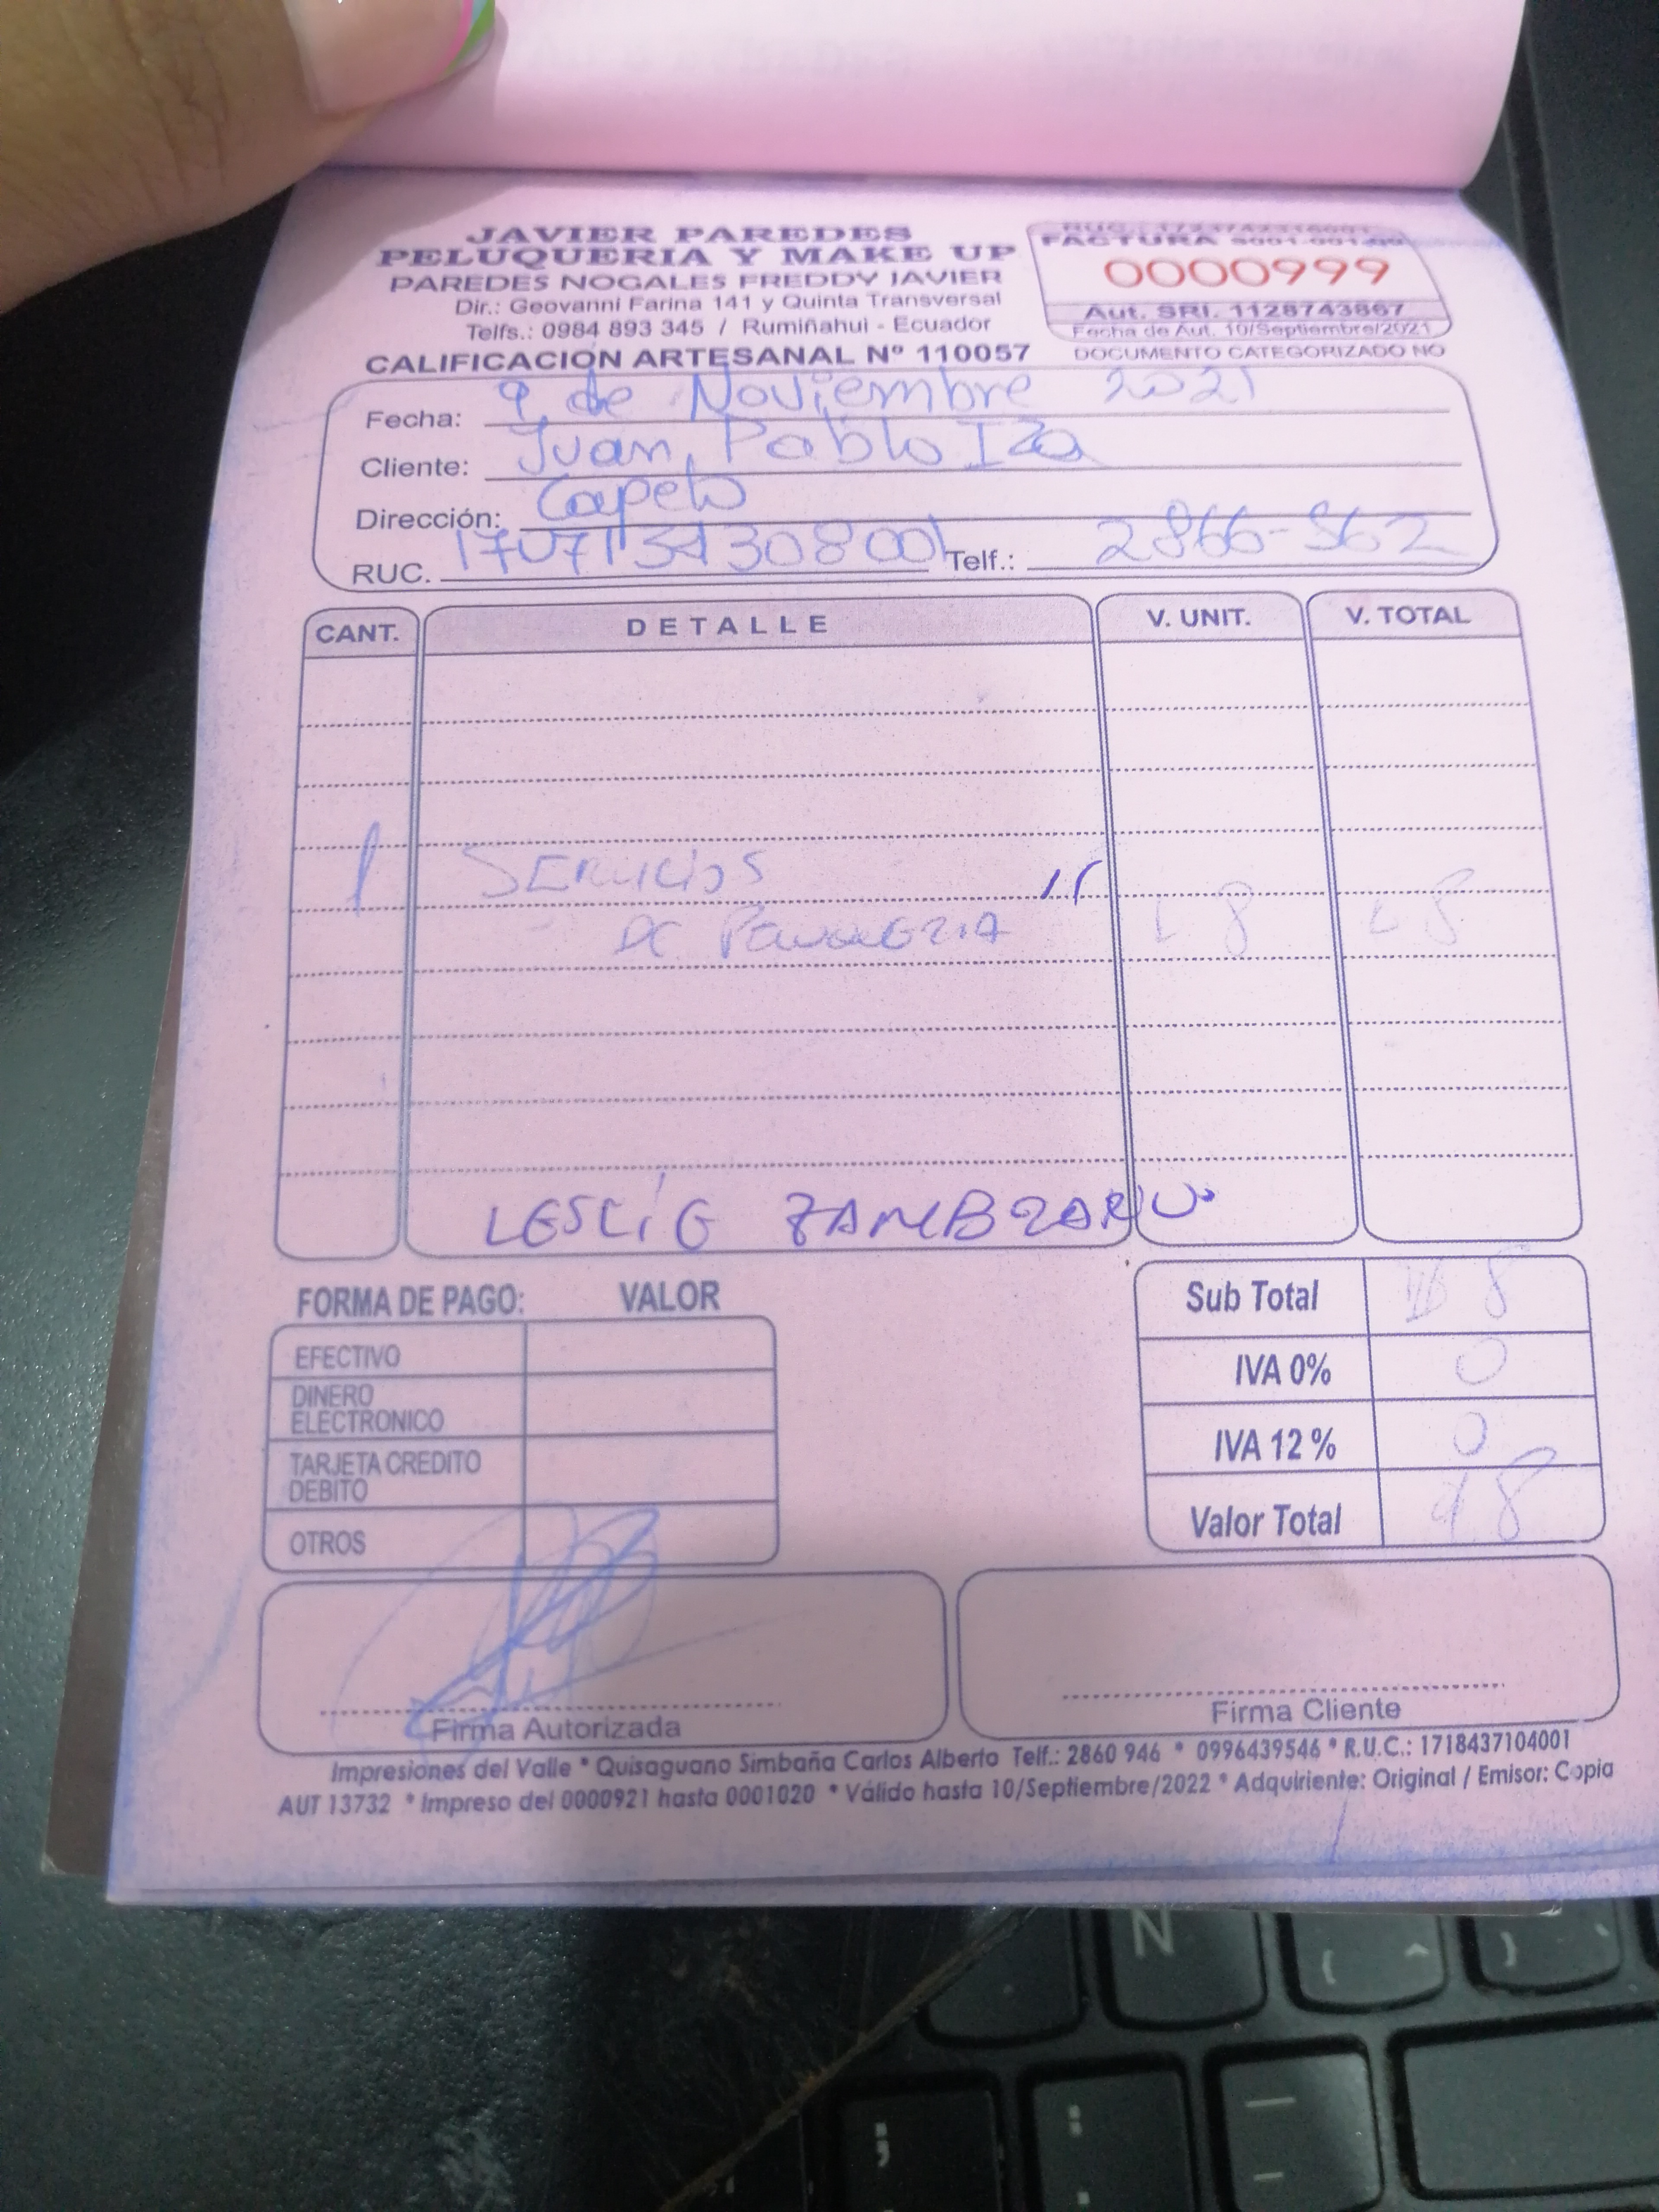 JAVIER PAREDES
PELUQUERIA Y MAKE UP
PAREDES NOGALES FREDDY JAVIER
Dir.: Geovanni Farina 141 y Quinta Transversal
Telfs.: 0984 893 345 / Rumiñahui - Ecuador
CALIFICACION ARTESANAL Nº 110057
RUC.:
FACTURA S001-001-00
0000999
Aut. SRI. 1128743867
Fecha de Aut. 10/Septiembre/2021
DOCUMENTO CATEGORIZADO NO
Fecha: 9 de Noviembre 2021
Cliente: Juan Pablo Iza
Dirección: Capelo
RUC. Telf.: 2866-362
CANT. DETALLE V. UNIT. V. TOTAL
1 SERVICIOS
DE 8 8
LESLIE ZAMBRANO
FORMA DE PAGO: VALOR
EFECTIVO
DINERO ELECTRONICO
TARJETA CREDITO DEBITO
OTROS
Sub Total 8
IVA 0% 0
IVA 12 % 0
Valor Total 8
Firma Autorizada
Firma Cliente
Impresiones del Valle * Quisaguano Simbaña Carlos Alberto Telf.: 2860 946 * 0996439546 * R.U.C.: 1718437104001
AUT 13732 * Impreso del 0000921 hasta 0001020 * Válido hasta 10/Septiembre/2022 * Adquiriente: Original / Emisor: Copia
N
( ^
) ¨
; ,
: .
_ -